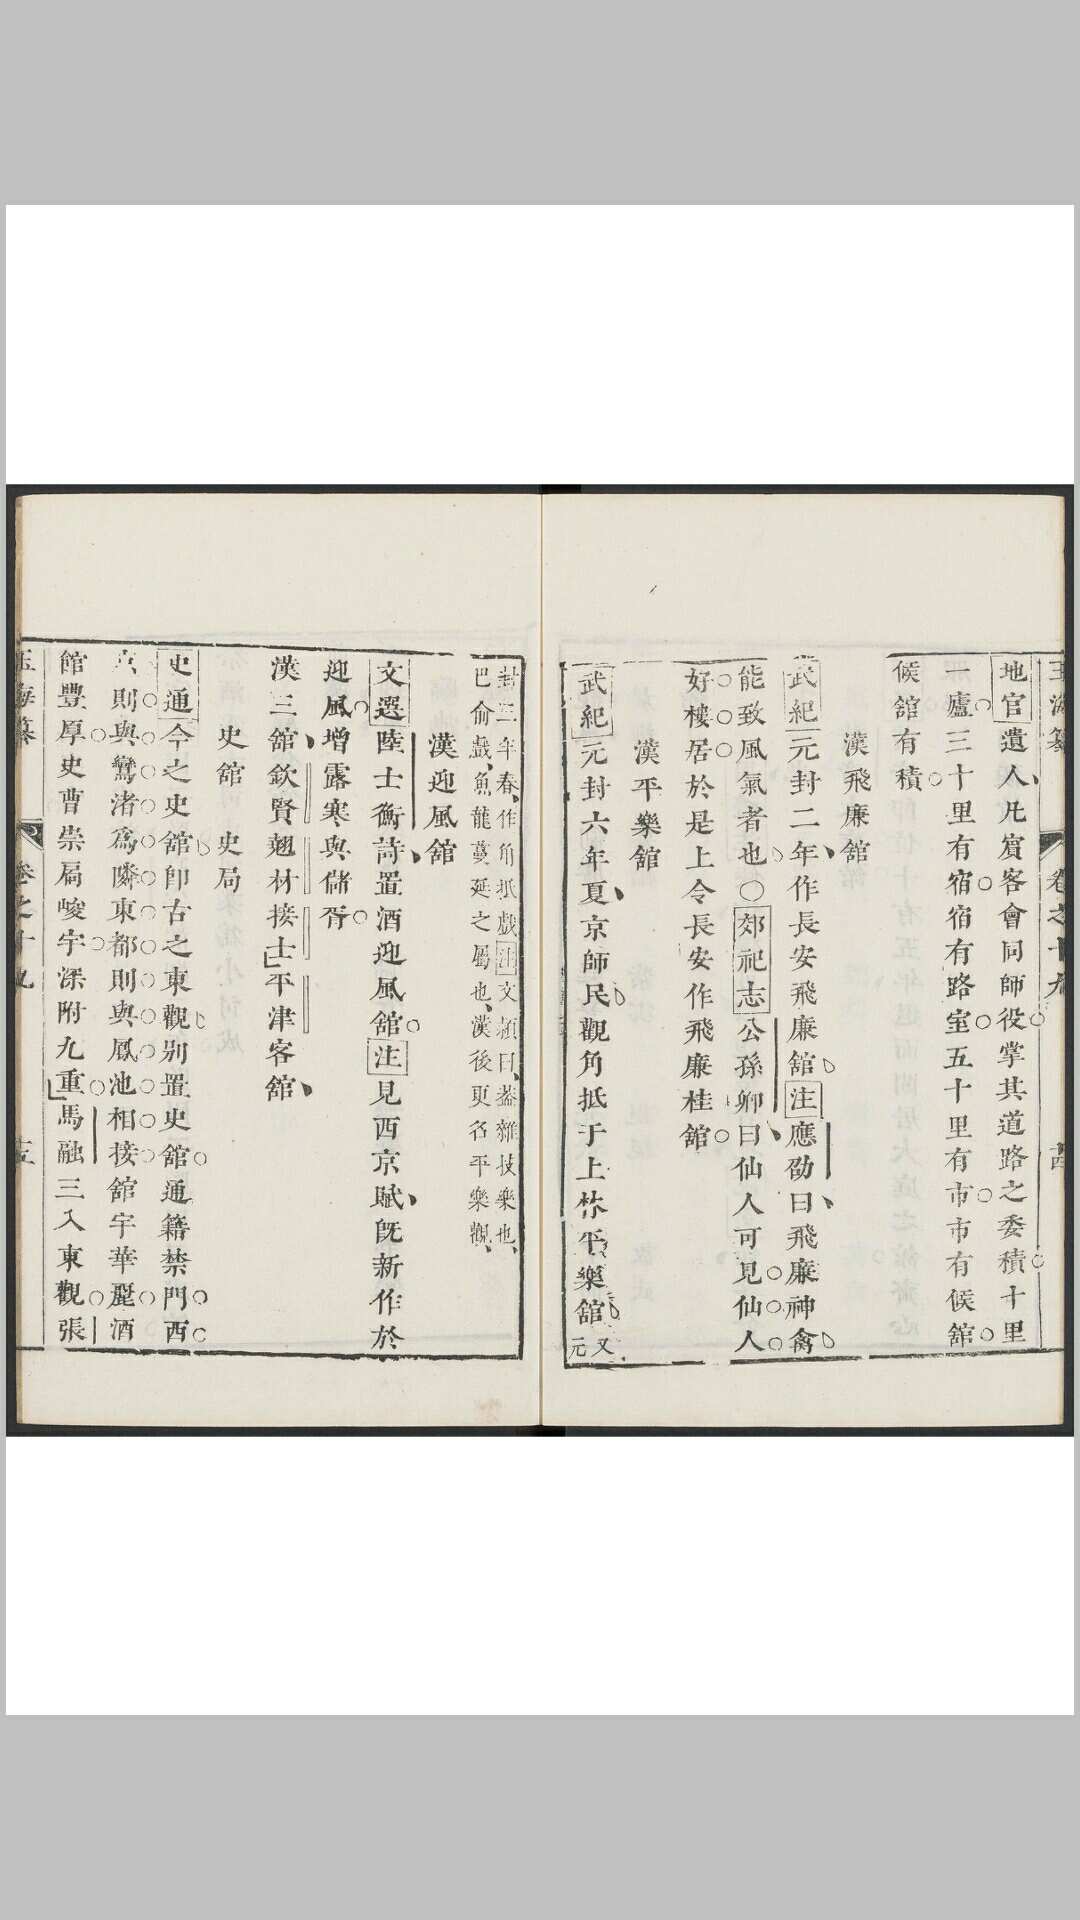 玉海纂 卷之十九
地官遺人凡賓客會同師役掌其道路之委積十里
一廬三十里有宿宿有路室五十里有市市有候舘
候舘有積
漢飛廉舘
武紀元封二年作長安飛廉舘注應劭曰飛廉神禽
能致風氣者也○郊祀志公孫卿曰仙人可見仙人
好樓居於是上令長安作飛廉桂舘
漢平樂舘
武紀元封六年夏京師民觀角抵于上林平樂舘又元
封三年春作角抵戲注文穎曰蓋雜技樂也
巴俞戲魚龍蔓延之屬也漢後更名平樂觀
漢迎風舘
文選陸士衡詩置酒迎風舘注見西京賦旣新作於
迎風增露寒與儲胥
漢三舘欽賢翹材接士平津客舘
史舘 史局
史通今之史舘卽古之東觀别置史舘通籍禁門西
京則與鸞渚爲隣東都則與鳳池相接舘宇華麗酒
館豐厚史曹崇扃峻宇深附九重馬融三入東觀張
玉海纂 卷之十九